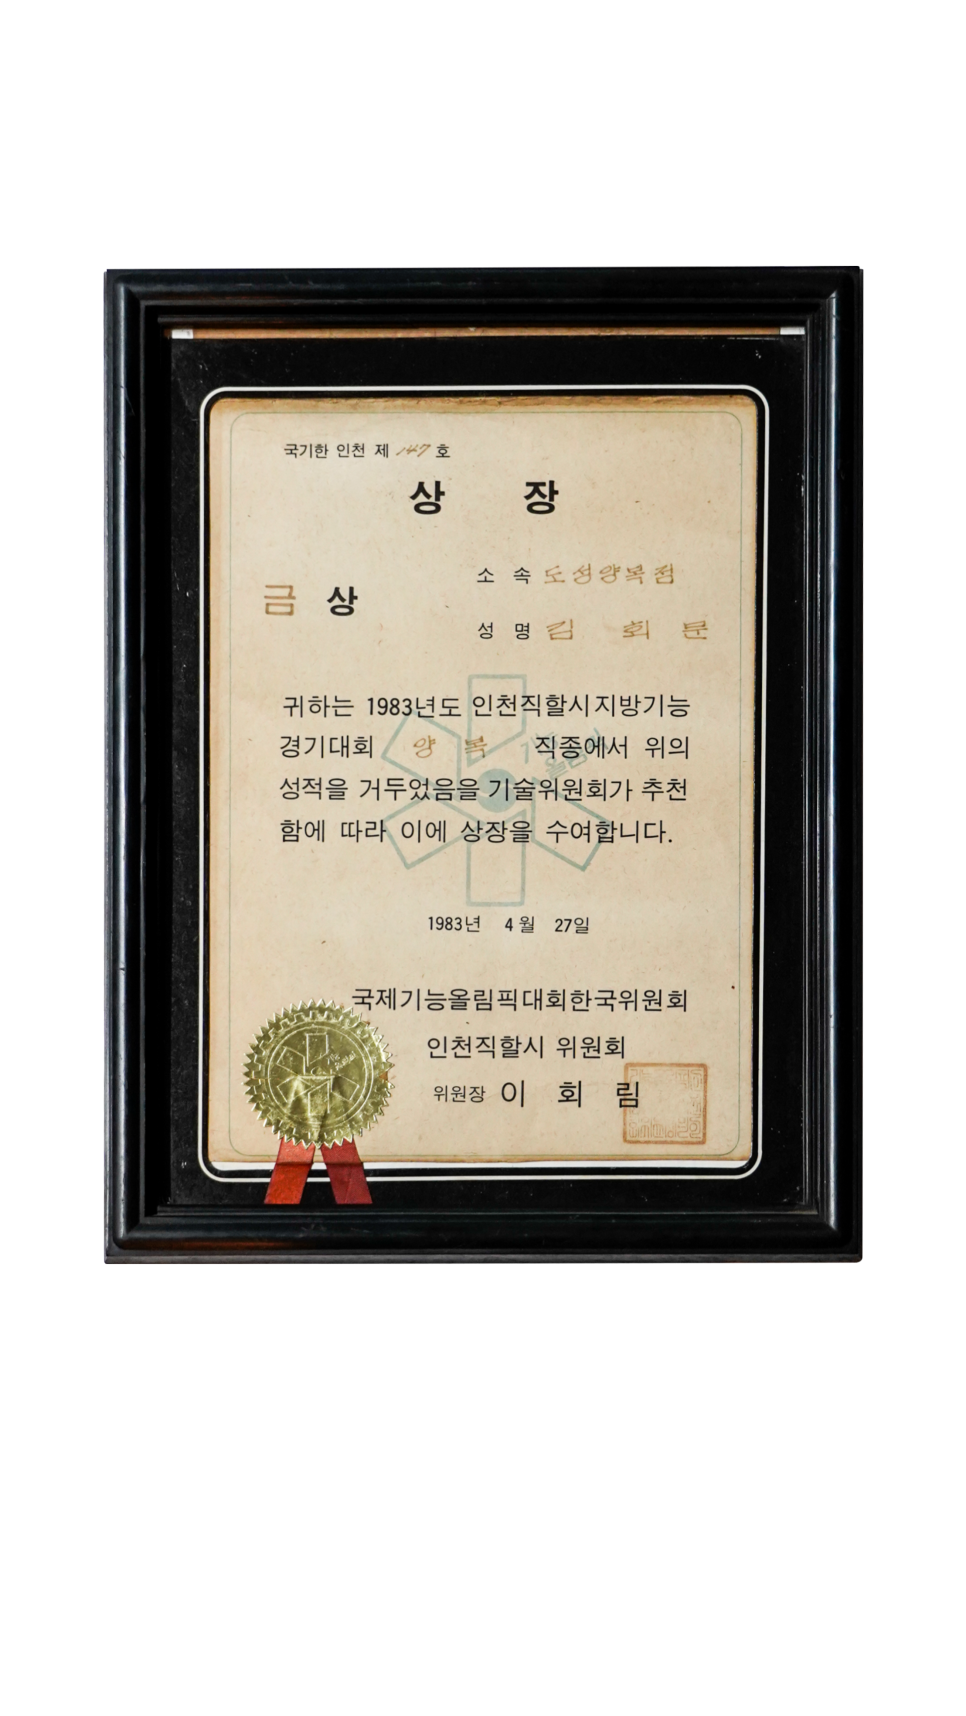 국기한 인천 제 147 호
상 장
금 상
소 속 도성양복점
성 명 김 회 문
귀하는 1983년도 인천직할시지방기능
경기대회 양 복 직종에서 위의
성적을 거두었음을 기술위원회가 추천
함에 따라 이에 상장을 수여합니다.
1983년 4월 27일
국제기능올림픽대회한국위원회
인천직할시 위원회
위원장 이 회 림